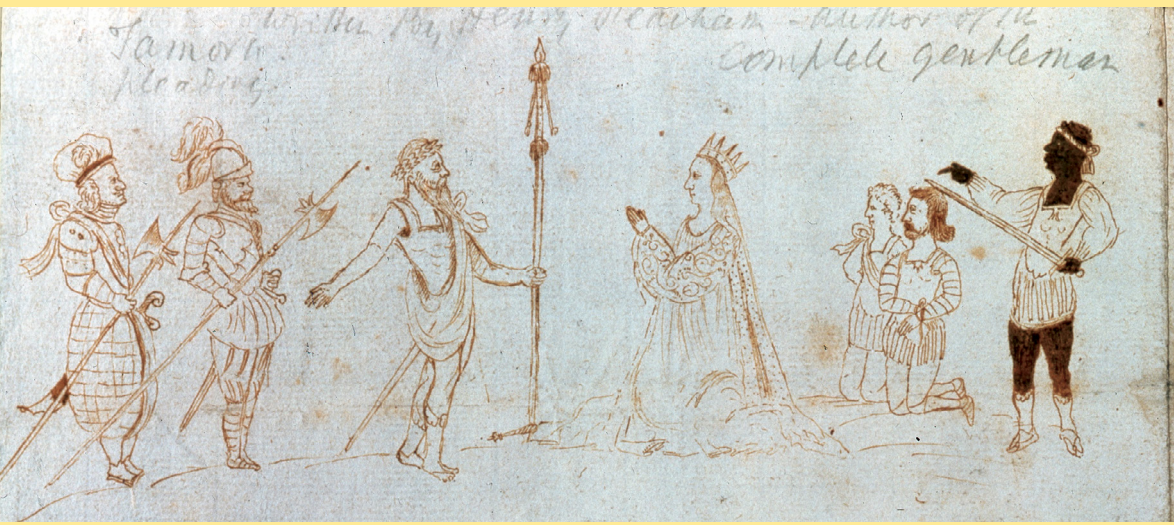 written by Henry Peacham - author of the
Tamora complete gentleman
pleading